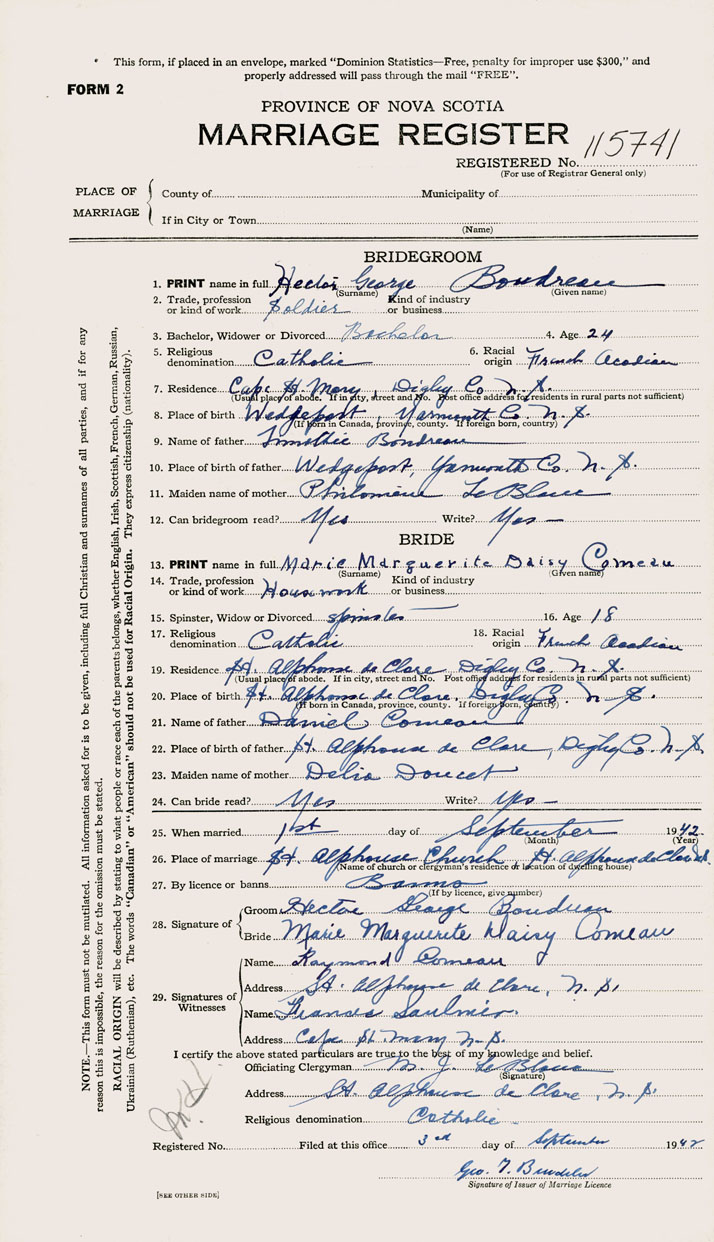 * This form, if placed in an envelope, marked “Dominion Statistics—Free, penalty for improper use $300,” and
properly addressed will pass through the mail “FREE”.
FORM 2
PROVINCE OF NOVA SCOTIA
MARRIAGE REGISTER
115741
REGISTERED No.
(For use of Registrar General only)
PLACE OF MARRIAGE
County of Municipality of
If in City or Town
(Name)
BRIDEGROOM
1. PRINT name in full Hector George Boudreau
(Surname) (Given name)
2. Trade, profession or kind of work Soldier Kind of industry or business
3. Bachelor, Widower or Divorced Bachelor 4. Age 24
5. Religious denomination Catholic 6. Racial origin French Acadian
7. Residence Cape St. Mary, Digby Co. N. S.
(Usual place of abode. If in city, street and No. Post office address for residents in rural parts not sufficient)
8. Place of birth Wedgeport, Yarmouth Co. N. S.
(If born in Canada, province, county. If foreign born, country)
9. Name of father Boudreau
10. Place of birth of father Wedgeport, Yarmouth Co. N. S.
11. Maiden name of mother Philomène LeBlanc
12. Can bridegroom read? Yes Write? Yes
BRIDE
13. PRINT name in full Marie Marguerite Daisy Comeau
(Surname) (Given name)
14. Trade, profession or kind of work Housework Kind of industry or business
15. Spinster, Widow or Divorced spinster 16. Age 18
17. Religious denomination Catholic 18. Racial origin French Acadian
19. Residence St. Alphonse de Clare, Digby Co. N. S.
(Usual place of abode. If in city, street and No. Post office address for residents in rural parts not sufficient)
20. Place of birth St. Alphonse de Clare, Digby Co. N. S.
(If born in Canada, province, county. If foreign born, country)
21. Name of father Daniel Comeau
22. Place of birth of father St. Alphonse de Clare, Digby Co. N. S.
23. Maiden name of mother Delia Doucet
24. Can bride read? Yes Write? Yes
25. When married 1st day of September 1942
(Month) (Year)
26. Place of marriage St. Alphonse Church St. Alphonse de Clare
(Name of church or clergyman's residence or location of dwelling house)
27. By licence or banns Banns
(If by licence, give number)
28. Signature of
Groom Hector George Boudreau
Bride Marie Marguerite Daisy Comeau
29. Signatures of Witnesses
Name Raymond Comeau
Address St. Alphonse de Clare, N. S.
Name Francis Saulnier
Address Cape St. Mary N. S.
I certify the above stated particulars are true to the best of my knowledge and belief.
Officiating Clergyman M. J. LeBlanc
(Signature)
Address St. Alphonse de Clare, N. S.
Religious denomination Catholic
Registered No. Filed at this office 3rd day of September 1942
Geo. T.
Signature of Issuer of Marriage Licence
[SEE OTHER SIDE]
NOTE.—This form must not be mutilated. All information asked for is to be given, including full Christian and surnames of all parties, and if for any
reason this is impossible, the reason for the omission must be stated.
RACIAL ORIGIN will be described by stating to what people or race each of the parents belongs, whether English, Irish, Scottish, French, German, Russian,
Ukrainian (Ruthenian), etc. The words “Canadian” or “American” should not be used for Racial Origin. They express citizenship (nationality).